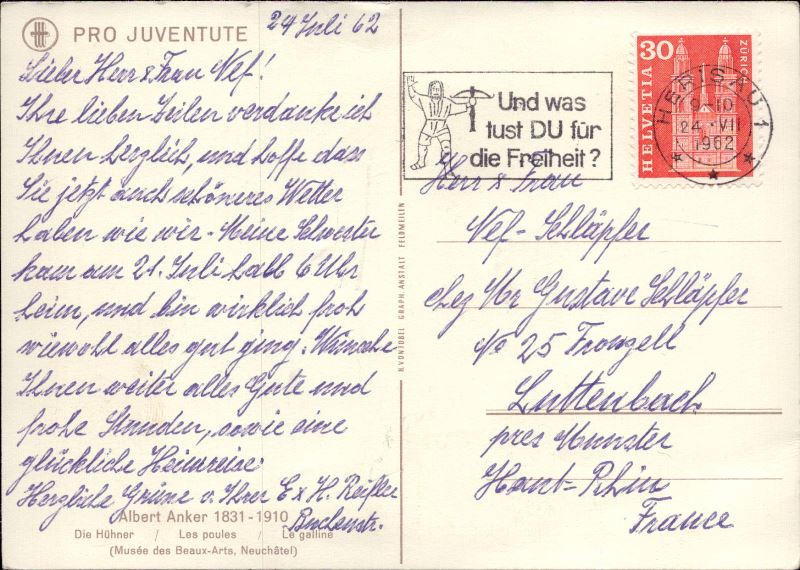 PRO JUVENTUTE
24 Juli 62
Lieber Herr & Frau Nef!
Ihre lieben Zeilen verdanke ich
Ihnen herzlich, und hoffe dass
Sie jetzt auch schöneres Wetter
haben wie wir. Meine Schwester
kam am 21. Juli halb 6 Uhr
heim, und bin wirklich froh
wiewohl alles gut ging. Wünsche
Ihnen weiter alles Gute und
frohe Stunden, sowie eine
glückliche Heimreise.
Herzliche Grüsse v. Ihrer E & H. Reifler
Buchenstr.
Albert Anker 1831-1910
Die Hühner / Les poules / Le galline
(Musée des Beaux-Arts, Neuchâtel)
H. VONTOBEL GRAPH. ANSTALT FELDMEILEN
Und was
tust DU für
die Freiheit?
30
ZÜRICH
HELVETIA
HERISAU 1
9-10
24.VII
1962
Herr & Frau
Nef-Schläpfer
chez Mr Gustave Schläpfer
No 25 Fronzell
Luttenbach
près Munster
Haut-Rhin
France